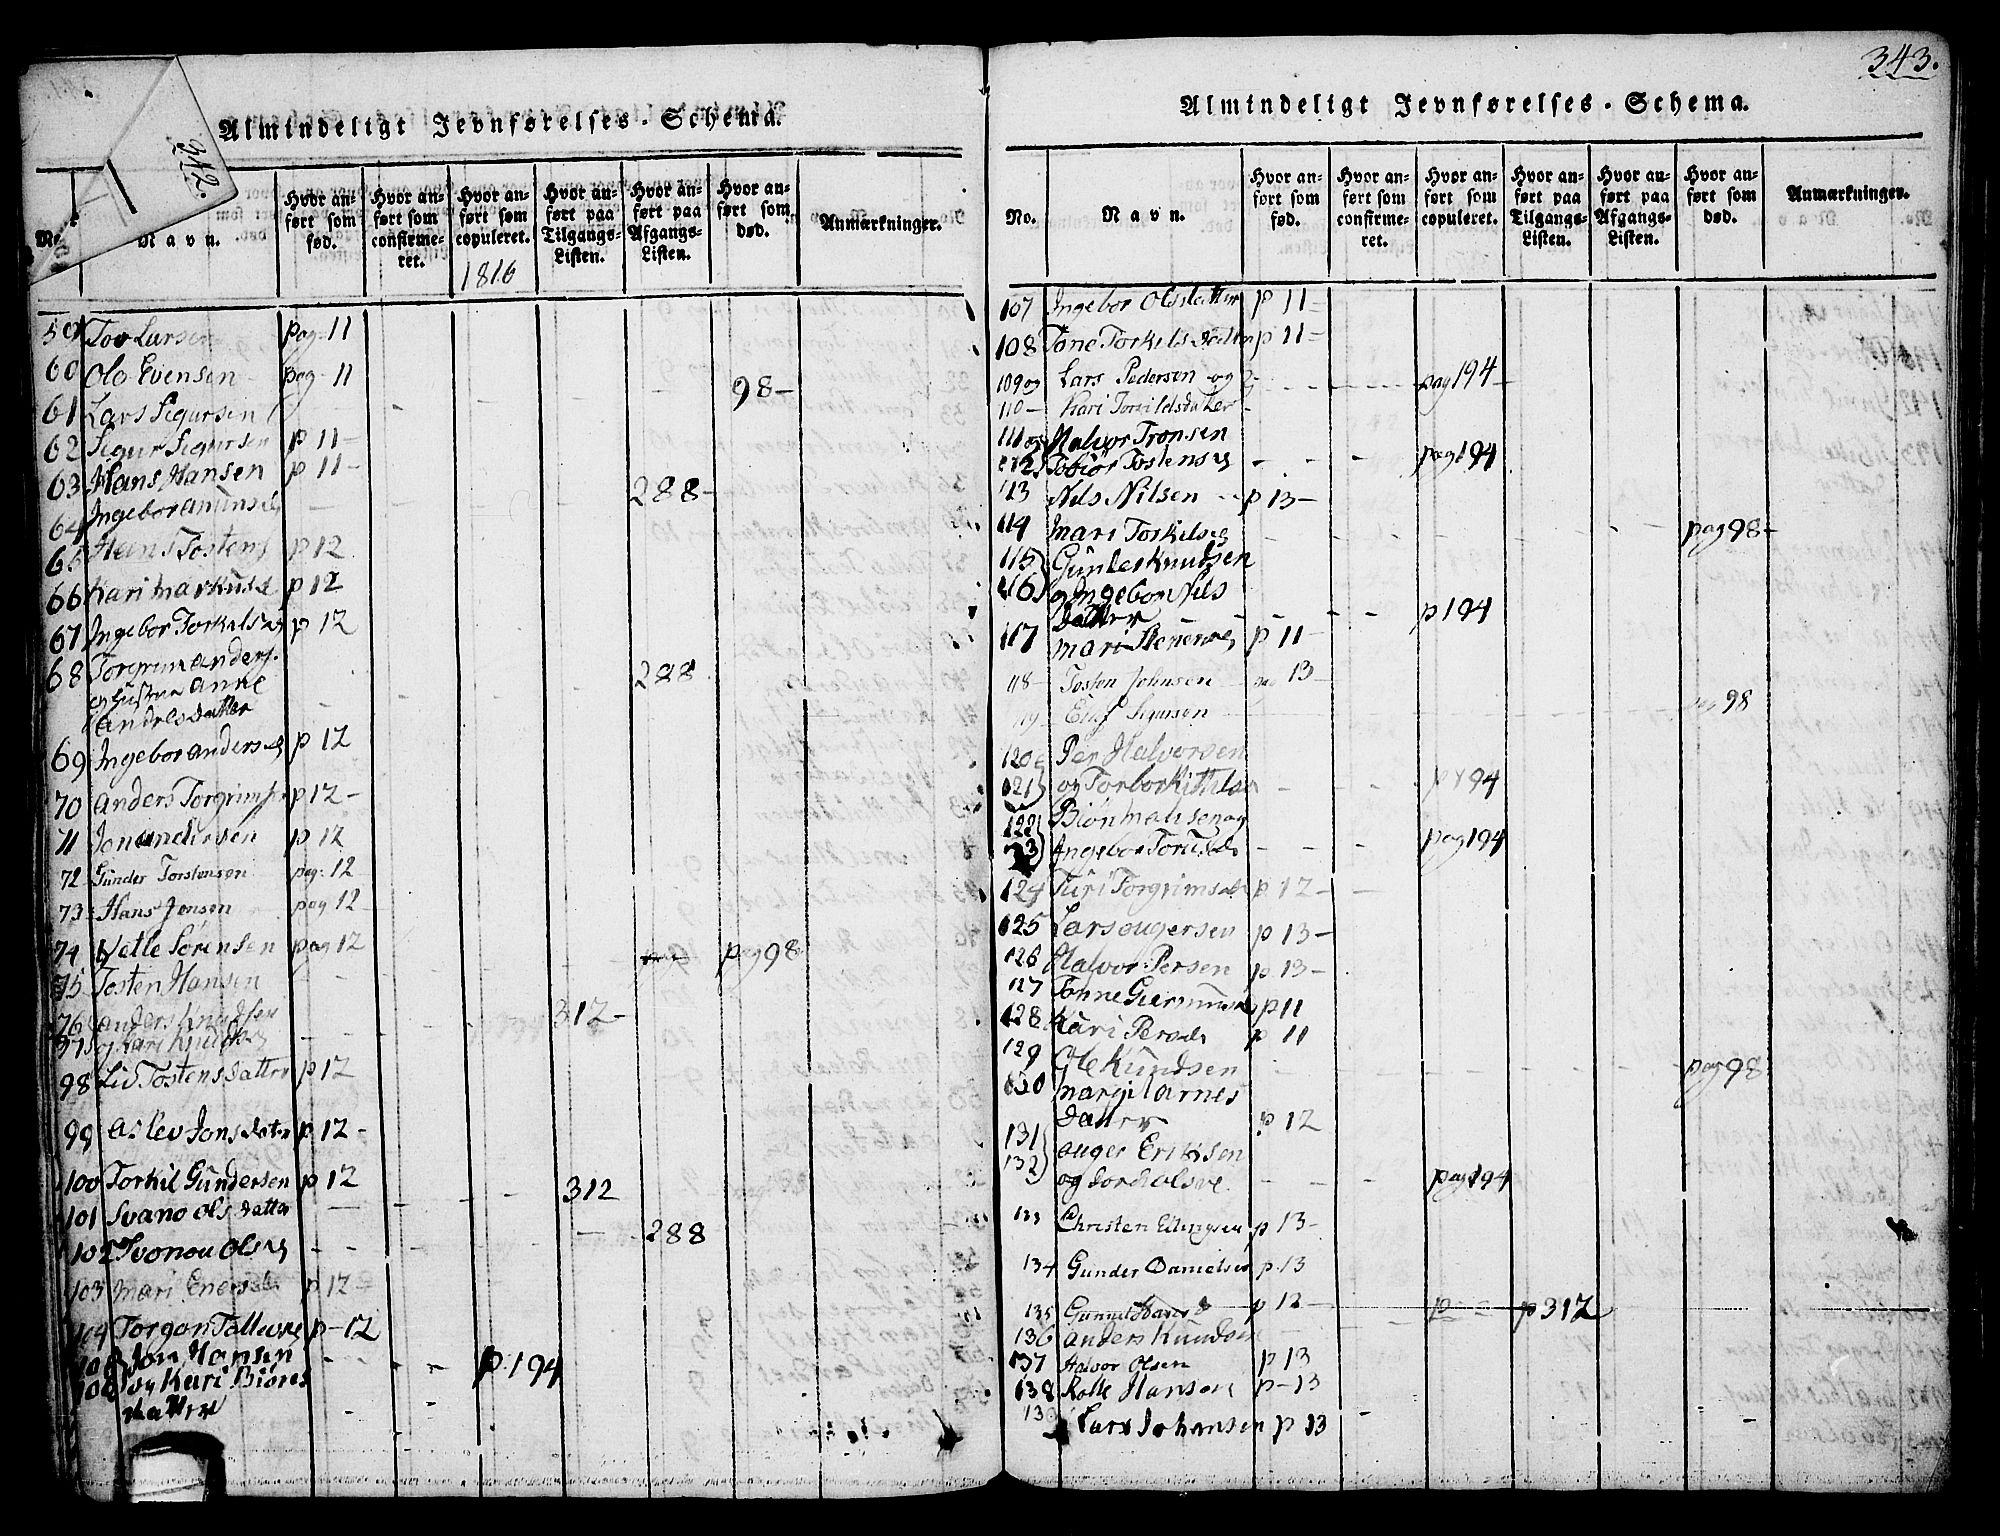 342.
Almindeligt Jevnførelses-Schema.
No.
Navn.
Hvor an-
ført som
fød.
Hvor an-
ført som
confirme-
ret.
Hvor an-
ført som
copuleret.
1816
Hvor an-
ført paa
Tilgangs-
Listen.
Hvor an-
ført paa
Afgangs-
Listen.
Hvor an-
ført som
død.
Anmærkninger.
59 Tov Larsen pag. 11
60 Ole Evensen pag. 11
61 Lars Sigursen 98-
62 Sigur Sigursen p 11-
63 Hans Hansen p 11-
64 Ingebor 288-
65 Hans Tostens p 12
66 Kari Markusd p 12
67 Ingebor Torkels p 12
68 Torgrim anders. 288
og hustru anne
andresdatter
69 Ingebor anders p 12
70 anders Torgrims p 12-
71 Jon andersen p 12
72 Gunder Torstensen pag. 12
73 Hans Jensen pag 12
74 Vetle Sørensen pag 12
75 Tosten Hansen pag 98
76 anders Knudsen 312-
97 og Kari Knuds
98 Liv Tostensdatter p 12
99 aslev Jonsdater p 12-
100 Torkil Gundersen p 12
101 Svano olsdatter 312
102 Tvonou Ols 288
103 Mari Eners p 12-
104 Torgon Tallevs p-12
105 Jon Hansen
106 og Kari Biøres p. 194
datter
343.
Almindeligt Jevnførelses-Schema.
No.
Navn.
Hvor an-
ført som
fød.
Hvor an-
ført som
confirme-
ret.
Hvor an-
ført som
copuleret.
Hvor an-
ført paa
Tilgangs-
Listen.
Hvor an-
ført paa
Afgangs-
Listen.
Hvor an-
ført som
død.
Anmærkninger.
107 Ingebor Olsdatter p 11-
108 Tone Torkelsdatter p 11-
109 og Lars Pedersen og pag 194
110- Kari Torkildsdatter
111 og Halvor Tronsen
112 Tobiør Tostens pag 194
113 Nils Nilsen p 13-
114 Mari Torkels pag 98-
115 Gunder Knudsen
116 og Ingebor Nils
datter p 194
117 mari Steners p 11-
118- Tosten Johnsen 13-
119 Eluf Sigursen 98
120 Per Halvorsen
121 og Torbor Kittels p 194
122 Biøn Madsen og
123 Ingebor pag 194
124 Turi Torgrims p 12-
125 Lars augersen p 13-
126 Halvor Persen p 13-
127 Tonne p 11
128 Kari Persd p 11
129 Ole Kundsen pag 98
130 margit arnes
datter p 12
131 auger Eriksen
132 og pag 194
133 Christen p 13-
134 Gunder Danielsen p. 13
135 Gunnil p 12 p p 312
136 anders Knudsen
137 Halvor Olsen p 13
138 Rolle Hansen p-13
139 Lars Johansen p 13